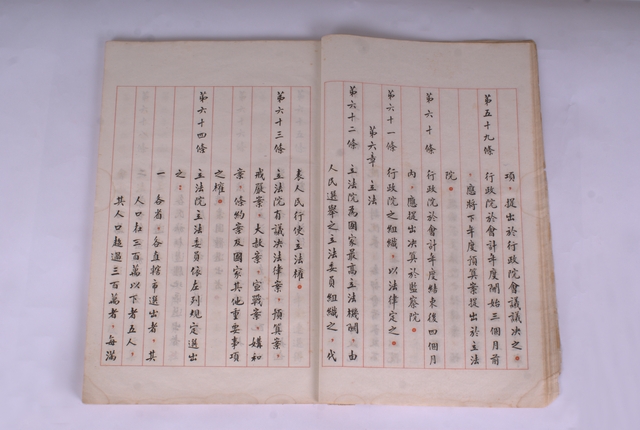 項，提出於行政院會議議決之。
第五十九條　行政院於會計年度開始三個月前
，應將下年度預算案提出於立法
院。
第六十條　行政院於會計年度結束後四個月
內，應提出決算於監察院。
第六十一條　行政院之組織，以法律定之。
第六章　立法
第六十二條　立法院為國家最高立法機關，由
人民選舉之立法委員組織之，代
表人民行使立法權。
第六十三條　立法院有議決法律案，預算案，
戒嚴案，大赦案，宣戰案，媾和
案，條約案及國家其他重要事項
之權。
第六十四條　立法院立法委員依左列規定選出
之：
一　各省，各直轄市選出者，其
人口在三百萬以下者五人，
其人口超過三百萬者，每滿